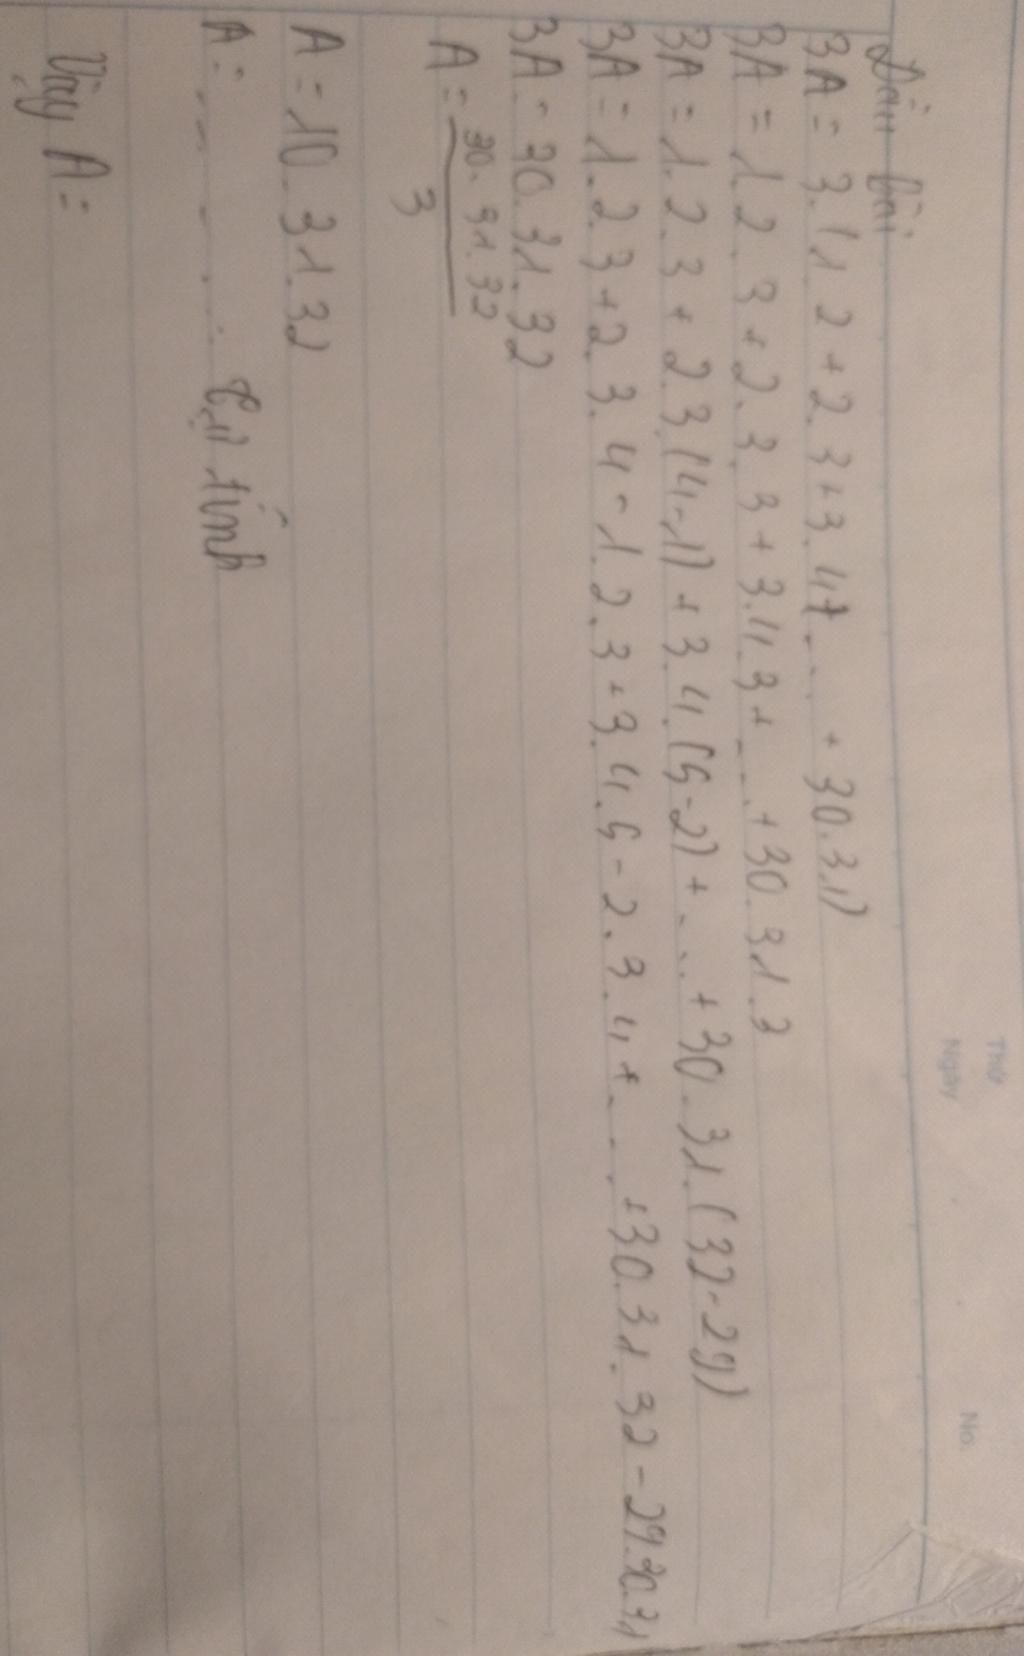 Thứ
Ngày
No.
Dẫn bài
3A = 3.(1.2+2.3+3.4+... + 30.31)
3A = 1.2.3+2.3.3+3.4.3+...+30.31.3
3A = 1.2.3+2.3(4-1)+3.4.(5-2)+...+30.31.(32-29)
3A = 1.2.3+2.3.4-1.2.3+3.4.5-2.3.4+....+30.31.32-29.30.31
3A = 30.31.32
A = 30.31.32
3
A = 10.31.32
A = ....... tự tính
Vậy A =